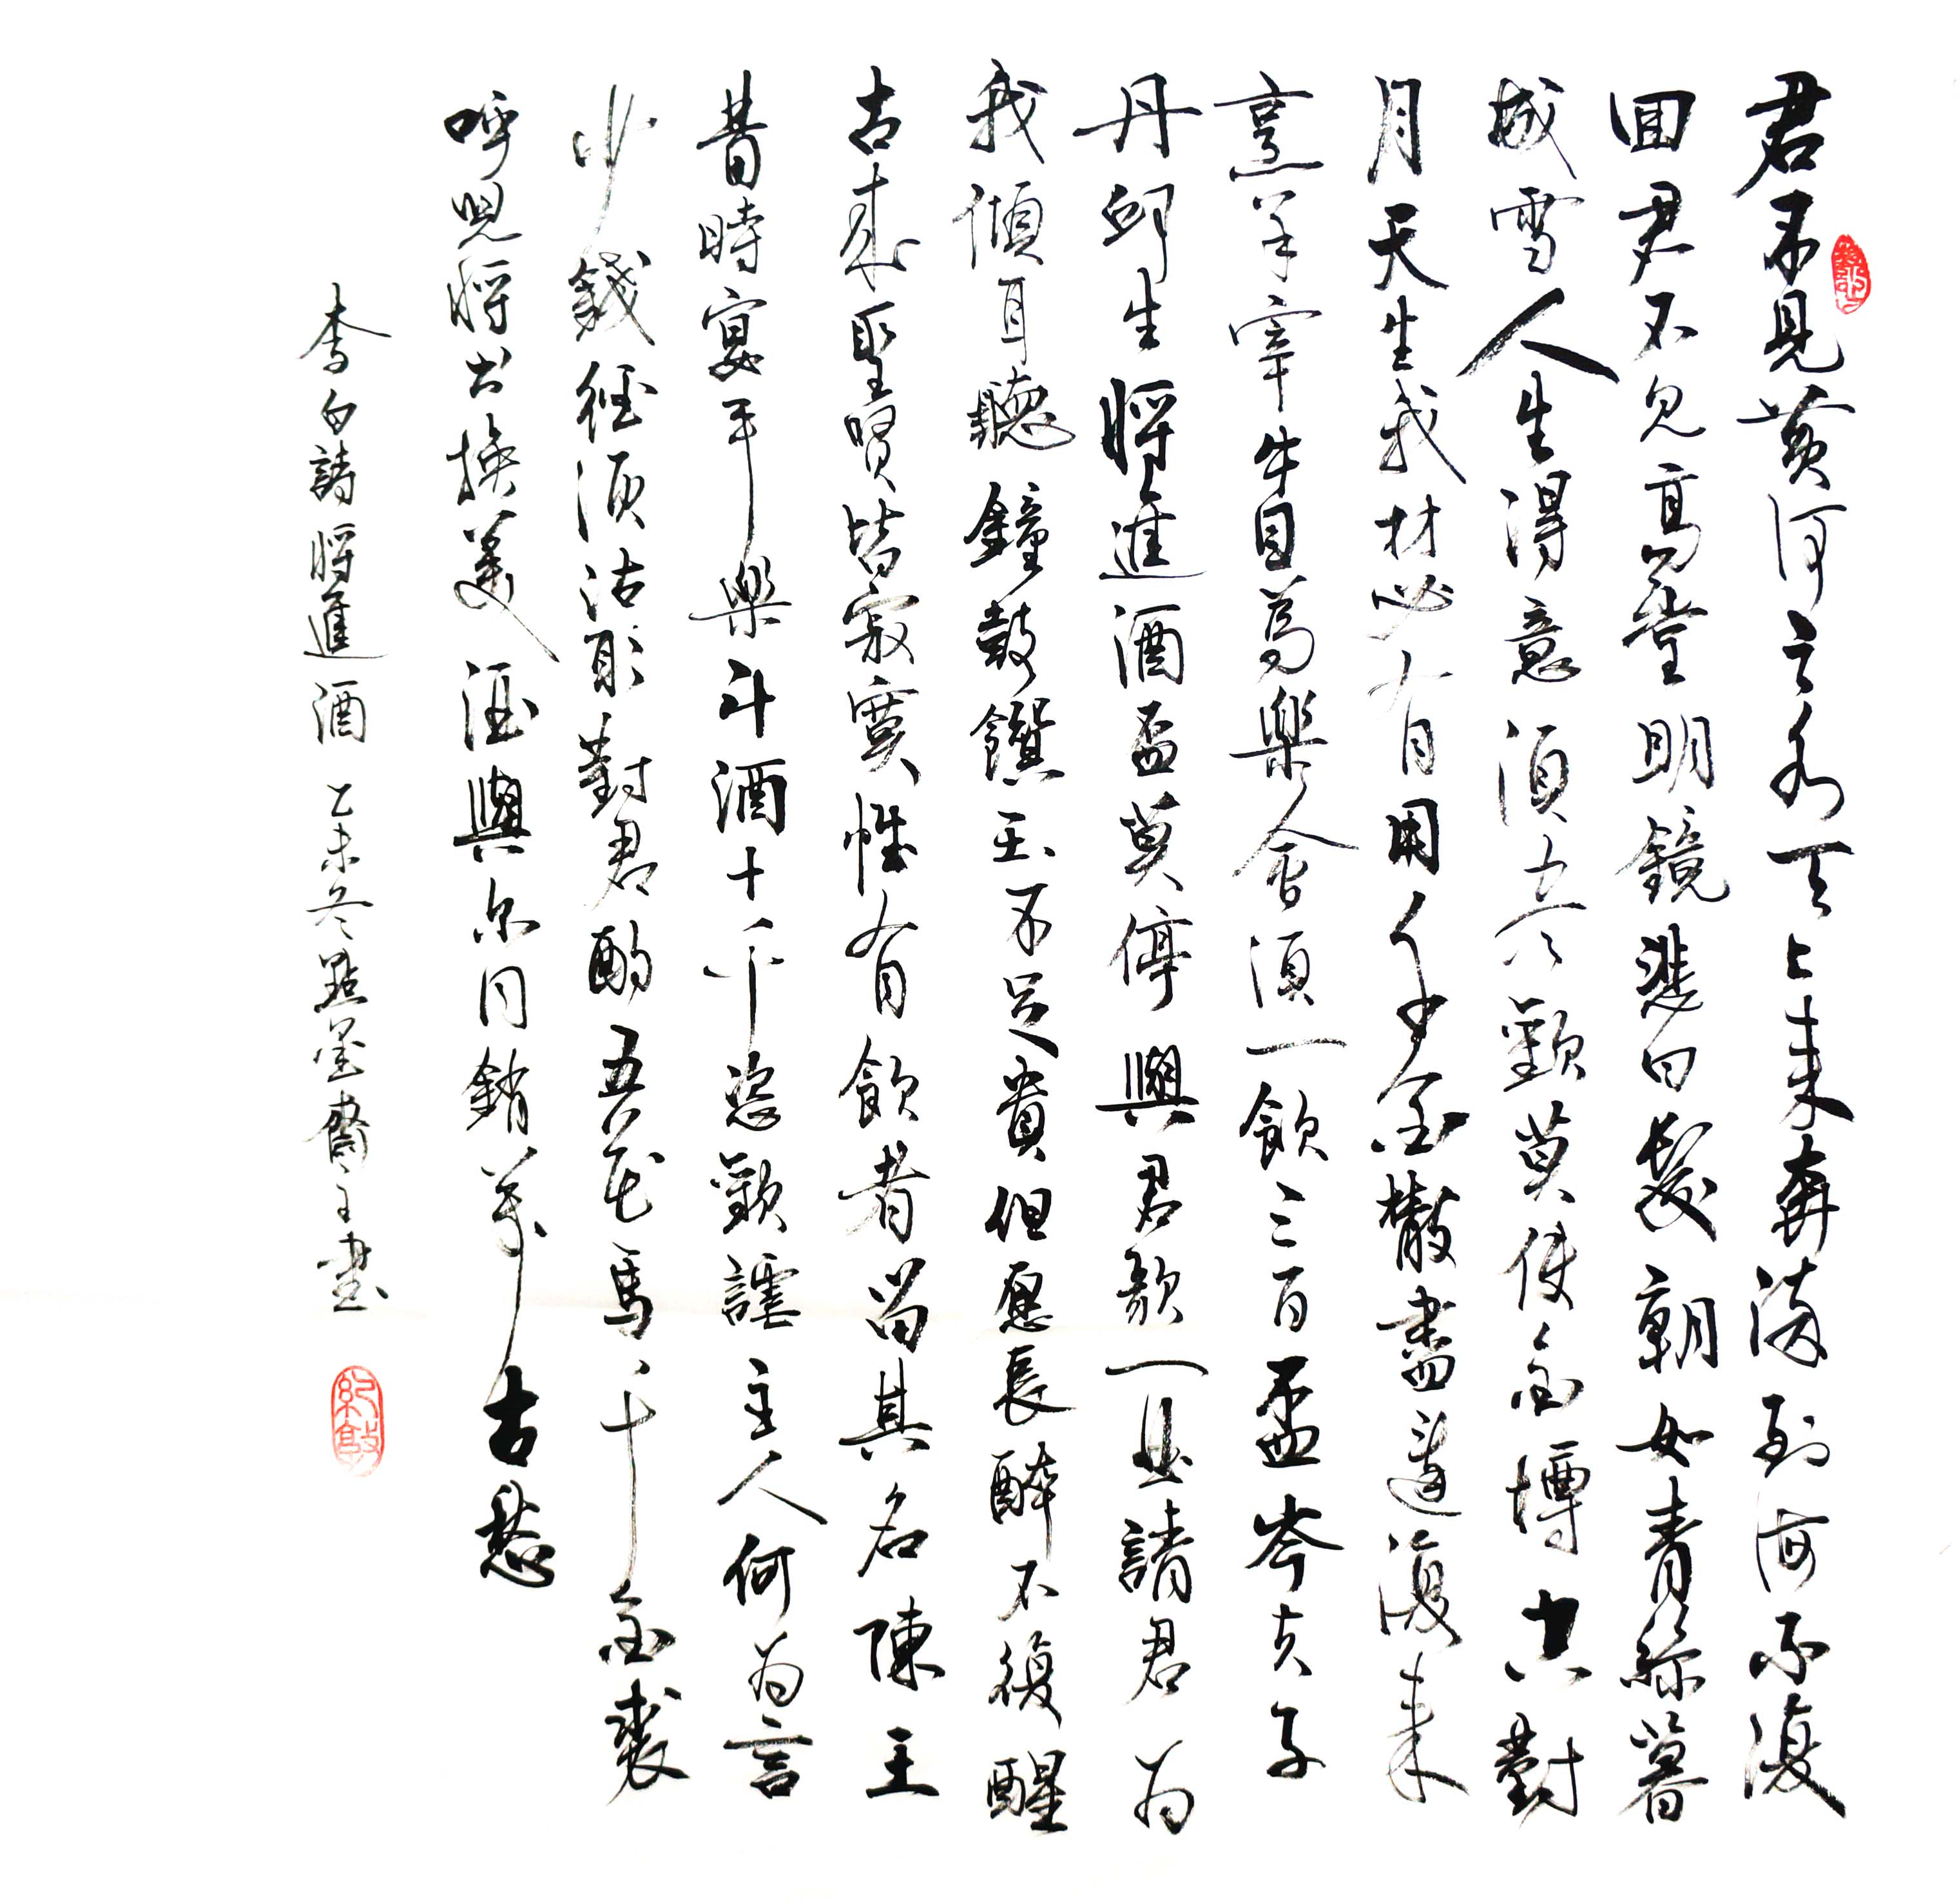 君不見黃河之水天上來奔流到海不復
回君不見高堂明鏡悲白髮朝如青絲暮
成雪人生得意須盡歡莫使金樽空對
月天生我材必有用千金散盡還復來
烹羊宰牛且為樂會須一飲三百盃岑夫子
丹邱生將進酒盃莫停與君歌一曲請君為
我傾耳聽鐘鼓饌玉不足貴但愿長醉不復醒
古來聖賢皆寂寞惟有飲者留其名陳王
昔時宴平樂斗酒十千恣歡謔主人何為言
少錢徑須沽取對君酌五花馬千金裘
呼兒將出換美酒與尔同銷萬古愁
李白詩將進酒 乙未冬點墨齋主書